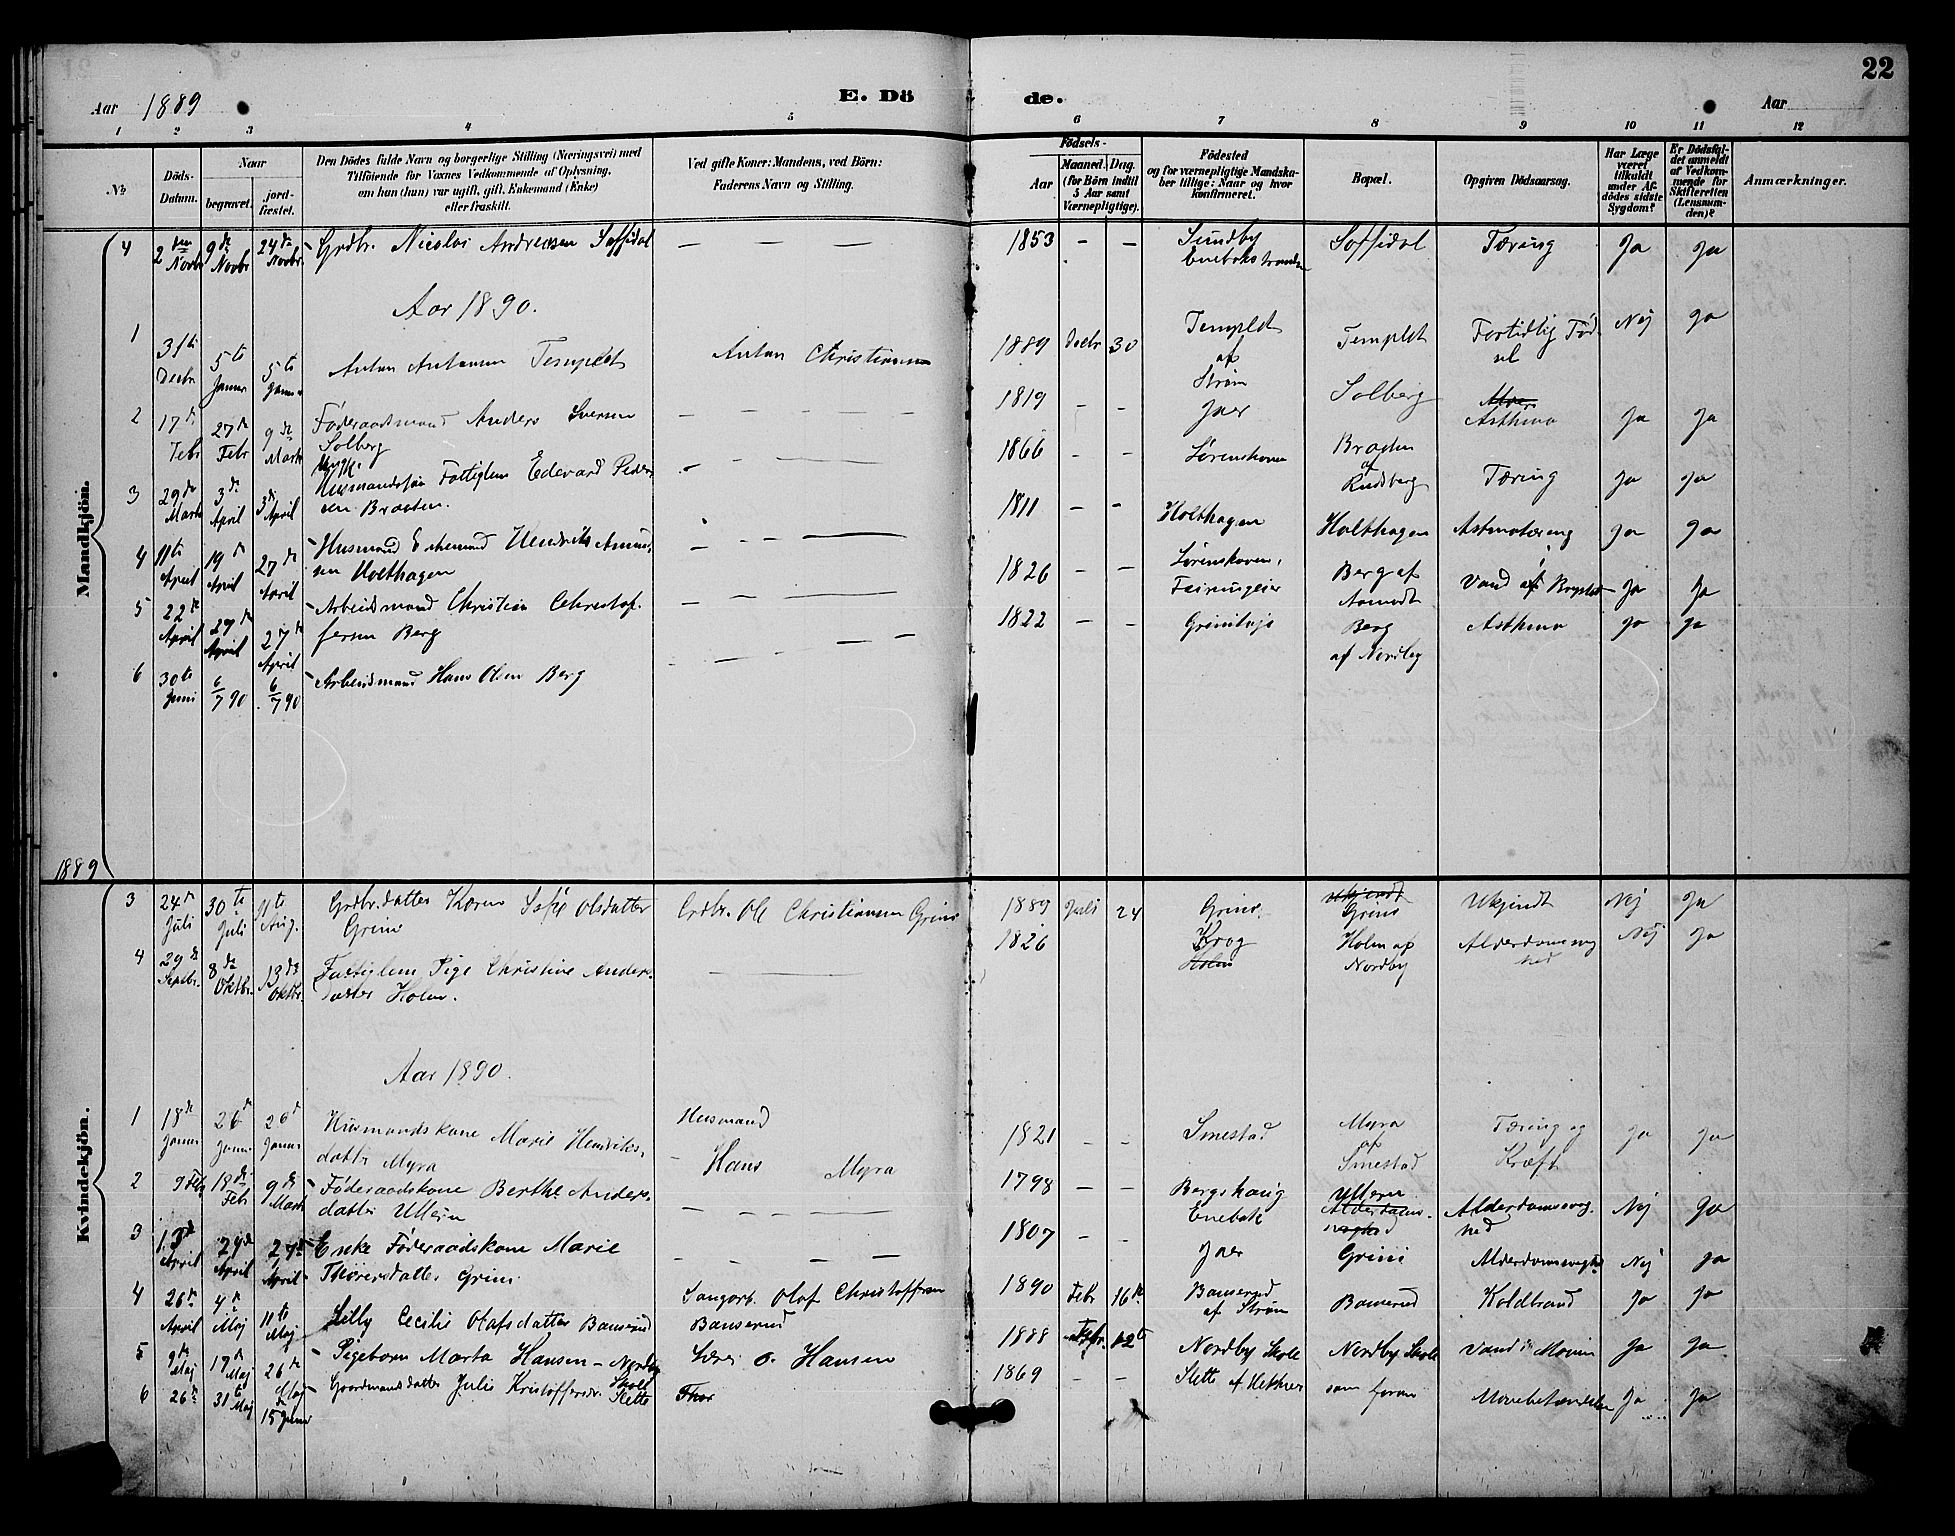 22
Aar 1889
E. Dö de.
Aar
1 2 3 4 5 6 7 8 9 10 11 12
No
Döds-Datum.
Naar
begravet.
jord-fæstet.
Den Dödes fulde Navn og borgerlige Stilling (Næringsvei) med
Tilföiende for Voxnes Vedkommende af Oplysning,
om han (hun) var ugift, gift, Enkemand (Enke)
eller fraskilt.
Ved gifte Koner: Mandens, ved Börn:
Faderens Navn og Stilling.
Födsels-
Aar
Maaned. Dag.
(for Börn indtil
5 Aar samt
Værnepligtige).
Födested
og for værnepligtige Mandska-
ber tillige: Naar og hvor
konfirmeret.
Bopæl.
Opgiven Dödsaarsag.
Har Læge
været
tilkaldt
under Af-
dödes sidste
Sygdom?
Er Dödsfal-
det anmeldt
af Vedkom-
mende for
Skifteretten
(Lensman-
den)?
Anmærkninger.
Mandkjön.
4 2den Novbr 9de Novbr 24de Novbr. Grdbr. Nicolai Andreasen Soffidal — — — 1853 – – Sundby Enebakstranden Soffidal Tæring Ja Ja
Aar 1890.
1 31te Decbr 5te Januar 5te Januar Anton Antonsen Templet Anton Christiansen 1889 Decbr 30 Templet af Strøm Templet Fortidlig Fødsel Nej Ja
2 17de Febr 27de Febr 9de Marts Føderaadsmand Anders Iversen Solberg — — — 1819 – – Jaer Solberg Asthma Ja Ja
3 29de Marts 3de April 3de April Husmandssøn Fattiglem Edevard Pedersen Braaten. — — — 1866 – – Lørenskoven Braaten af Rudsberg Tæring Ja Ja
4 11te April 19de April 27de April Husmand Enkemand Hendrik Amundsen Holthagen — — — 1811 – – Holthagen Holthagen Ja Ja
5 22de April 27de April 27de April Arbeidsmand Christian Christoffersen Berg — — — 1826 – – Lørenskoven, Berg af Vand af Brystet Ja Ja
6 30te Juni 6/7 90 6/7 90 Arbeidsmand Hans Olsen Berg — — — 1822 – – Berg af Nordby Asthma Ja Ja
1889
Kvindekjön.
3 24de Juli 30te Juli 11te Aug. Grdbr.datter Karen Sofie Olsdatter Grini Grdbr. Ole Christiansen Grini 1889 Juli 24 Grini Ukjendt Grini Ukjendt Nej Ja
4 29de Septbr. 8de Oktbr. 13de Oktbr. Fattiglem Pige Christine Andersdatter Holm. — — 1826 Krog Holm Holm af Nordby Alderdomssvaghed Nej Ja
Aar 1890.
1 18de Januar 26de Januar 26de Januar Husmandskone Marie Henriksdatter Myra Husmand Hans Myra 1821 – – Smestad Myra af Smestad Tæring og Kræft Ja Ja
2 9 Febr 18de Febr 9de Marts Føderaadskone Berthe Andersdatter Ullern — — — 1798 – – Bergskaug Enebak Ullern Alderdomssvaghed Alderdomssvaghed Nej Ja
3 13de April 27de April 27de April Enke Føderaadskone Marie Thoresdatter Grini — — — 1807 – – Jaer Grini Alderdomssvaghed Nej Ja
4 26de April 4de Maj 11te Maj Lilly Cecilie Olafsdatter Bauserud Saugarb. Olaf Christoffersen Bauserud 1890 Febr 16de Bauserud af Strøm Bauserud Koldbrand Ja Ja
5 9de Maj 17de Maj 26de Maj Pigebarn Marta Hansen – Nordby Skole Lærer O. Hansen 1888 Febr. 12te Nordby Skole Nordby Skole Vand i Ja Ja
6 26de 31te Maj 15 Juni Gaardmandsdatter Julie Kristoffersdr. Slette Thor 1869 – – Slette af som foran Mavebetændelse Ja Ja